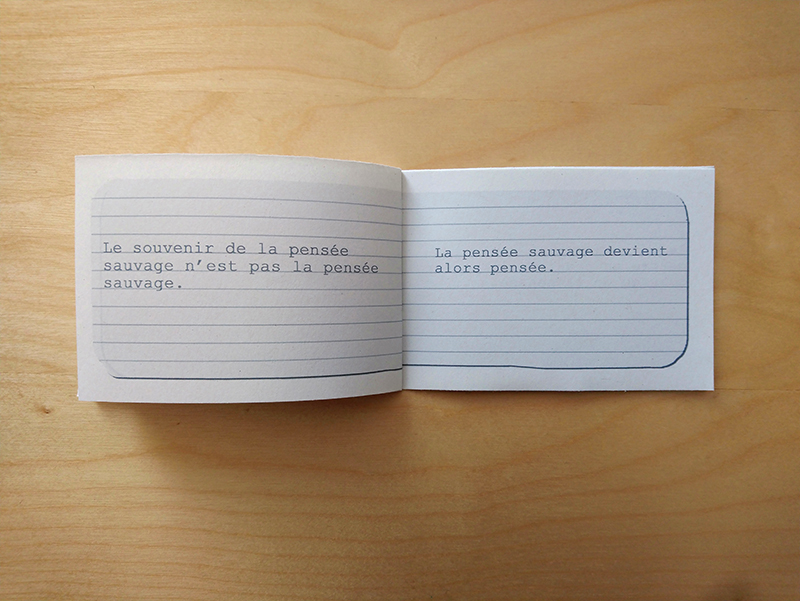 Le souvenir de la pensée
sauvage n'est pas la pensée
sauvage.
La pensée sauvage devient
alors pensée.